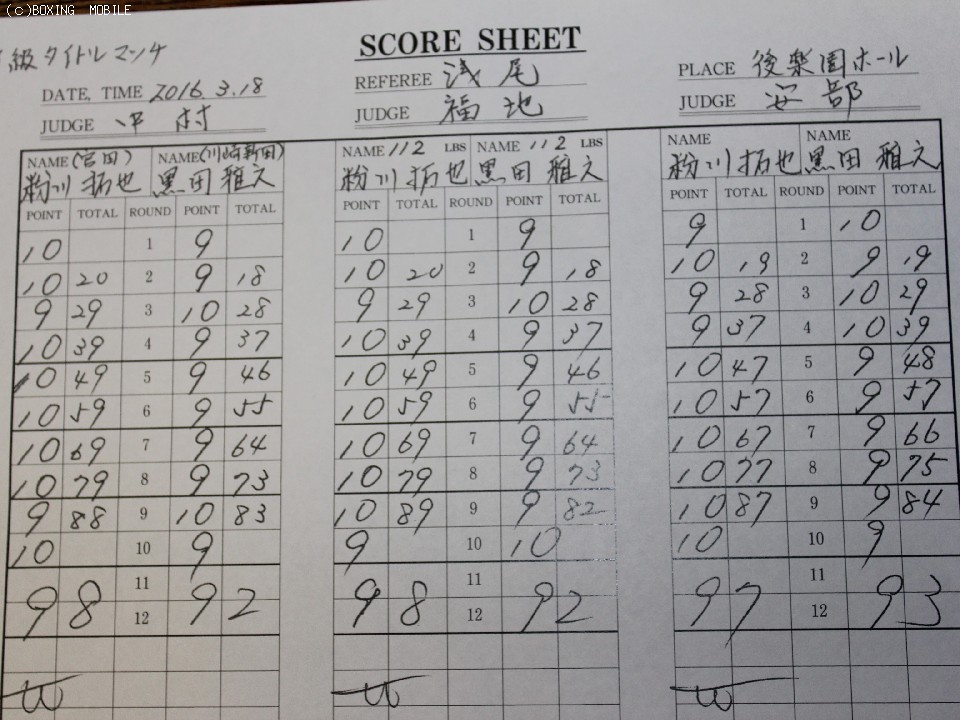 (c)BOXING MOBILE
級タイトルマッチ
SCORE SHEET
DATE, TIME 2016. 3.18 REFEREE 浅尾 PLACE 後楽園ホール
JUDGE 中村 JUDGE 福地 JUDGE 安部
NAME (宮田) NAME (川崎新田) NAME 112 LBS NAME 112 LBS NAME NAME
粉川拓也 黒田雅之 粉川拓也 黒田雅之 粉川拓也 黒田雅之
POINT TOTAL ROUND POINT TOTAL POINT TOTAL ROUND POINT TOTAL POINT TOTAL ROUND POINT TOTAL
10 1 9 10 1 9 9 1 10
10 20 2 9 18 10 20 2 9 18 10 19 2 9 19
9 29 3 10 28 9 29 3 10 28 9 28 3 10 29
10 39 4 9 37 10 39 4 9 37 9 37 4 10 39
10 49 5 9 46 10 49 5 9 46 10 47 5 9 48
10 59 6 9 55 10 59 6 9 55 10 57 6 9 57
10 69 7 9 64 10 69 7 9 64 10 67 7 9 66
10 79 8 9 73 10 79 8 9 73 10 77 8 9 75
9 88 9 10 83 10 89 9 9 82 10 87 9 9 84
10 10 9 9 10 10 10 10 9
11 11 11
98 12 92 98 12 92 97 12 93
W W W